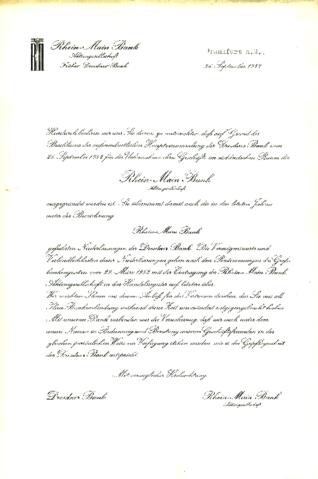 Rhein-Main Bank
Aktiengesellschaft
Früher Dresdner Bank
Frankfurt a.M.,
26. September 1952
Hierdurch beehren wir uns, Sie davon zu unterrichten, daß auf Grund der
Beschlüsse der außerordentlichen Hauptversammlung der Dresdner Bank vom
25. September 1952 für die Übernahme ihrer Geschäfte im süddeutschen Raum die
Rhein-Main Bank
Aktiengesellschaft
ausgegründet worden ist. Sie übernimmt damit auch die in den letzten Jahren
unter der Bezeichnung
Rhein-Main Bank
geführten Niederlassungen der Dresdner Bank. Die Vermögenswerte und
Verbindlichkeiten dieser Niederlassungen gehen nach den Bestimmungen des Groß-
bankengesetzes vom 29. März 1952 mit der Eintragung der Rhein-Main Bank
Aktiengesellschaft in das Handelsregister auf letztere über.
Wir möchten Ihnen aus diesem Anlaß für das Vertrauen danken, das Sie uns als
Ihrer Bankverbindung während dieser Zeit entgegengebracht haben.
Mit unserem Dank verbinden wir die Versicherung, daß wir auch unter dem
neuen Namen in Bedienung und Beratung unserer Geschäftsfreunde in der
gleichen persönlichen Weise zur Verfügung stehen werden, wie es der Gepflogenheit
der Dresdner Bank entspricht.
Mit vorzüglicher Hochachtung
Dresdner Bank
Rhein-Main Bank
Aktiengesellschaft